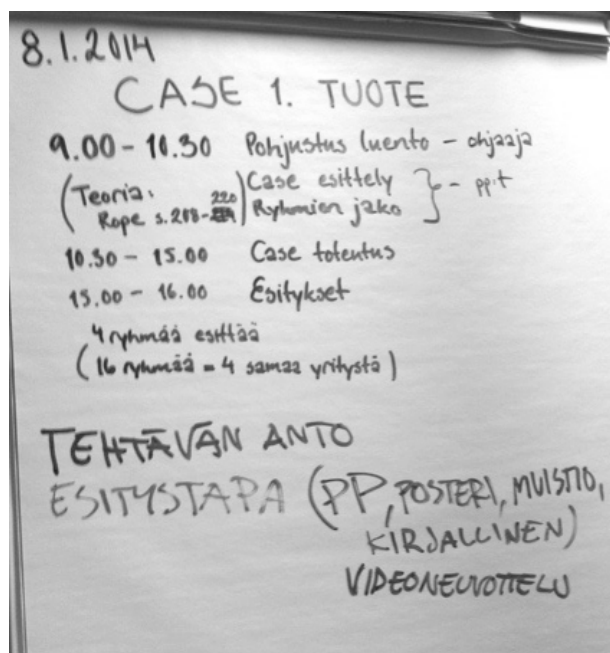 8.1.2014
CASE 1. TUOTE
9.00 - 10.30 Pohjustus luento - ohjaaja
(Teoria: Case esittely } - pp:t
Rope s.208-220) Ryhmien jako
10.30 - 15.00 Case toteutus
15.00 - 16.00 Esitykset
4 ryhmää esittää
(16 ryhmää = 4 samaa yritystä)
TEHTÄVÄN ANTO
ESITYSTAPA (PP, POSTERI, MUISTIO,
KIRJALLINEN)
VIDEONEUVOTTELU